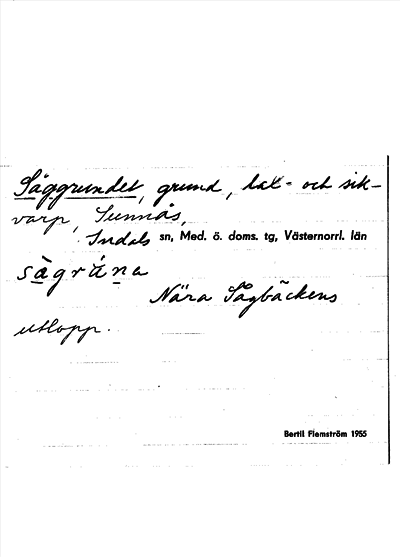 Såggrundet, grund, lax- och sik-
varp, Sunnås,
Indals sn, Med. ö. doms. tg, Västernorrl. län
sàgrúna
Nära Sågbäckens
utlopp.
Bertil Flemström 1955